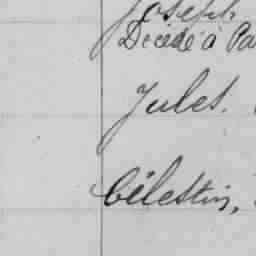 Joseph
Décédé à Pa
Jules.
Célestin,